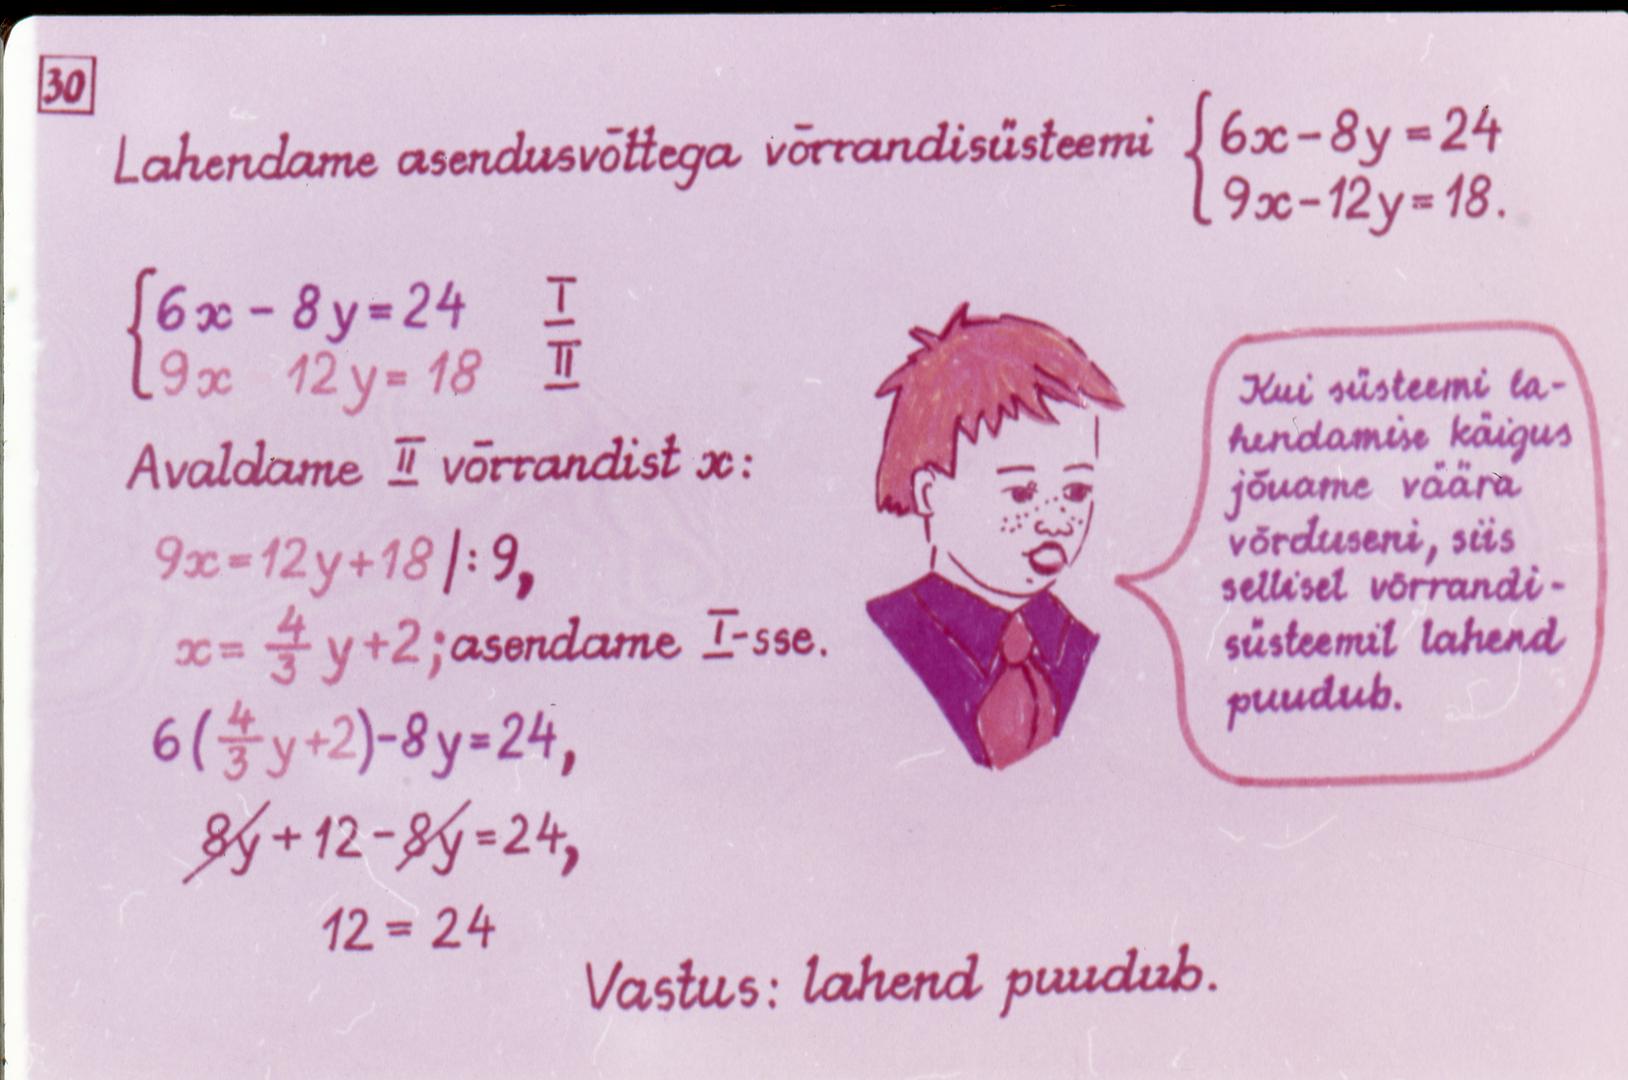 30
Lahendame asendusvõttega võrrandisüsteemi { 6x - 8y = 24
9x - 12y = 18.
{ 6x - 8y = 24 I
9x 12y = 18 II
Avaldame II võrrandist x:
9x = 12y + 18 |: 9,
x = 4/3 y + 2; asendame I-sse.
6(4/3 y + 2) - 8y = 24,
8y + 12 - 8y = 24,
12 = 24
Vastus: lahend puudub.
Kui süsteemi la-
hendamise käigus
jõuame väära
võrduseni, siis
sellisel võrrandi-
süsteemil lahend
puudub.